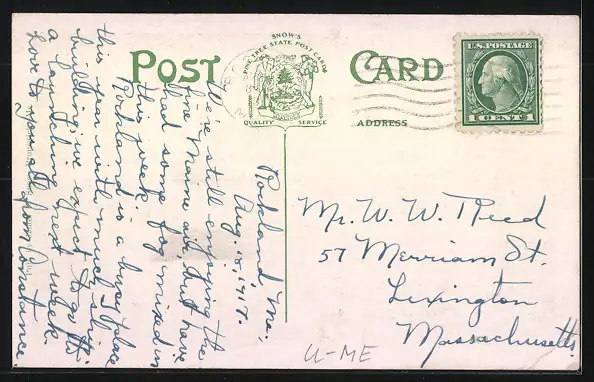 POST CARD
SNOW'S
PINE TREE STATE POST CARDS
QUALITY SERVICE
ADDRESS
U.S. POSTAGE
1 CENT 1
Rockland, Me.,
Aug. 15, 1917.
We're still enjoying the
fine Maine air, but have
had some fog mixed in
this week.
Rockland is a busy place
this year with much ship
building, we expect to go to
a launching next week.
Love to you all from Constance
Mr. W. W. Reed
57 Merriam St.
Lexington
Massachusetts.
U-ME